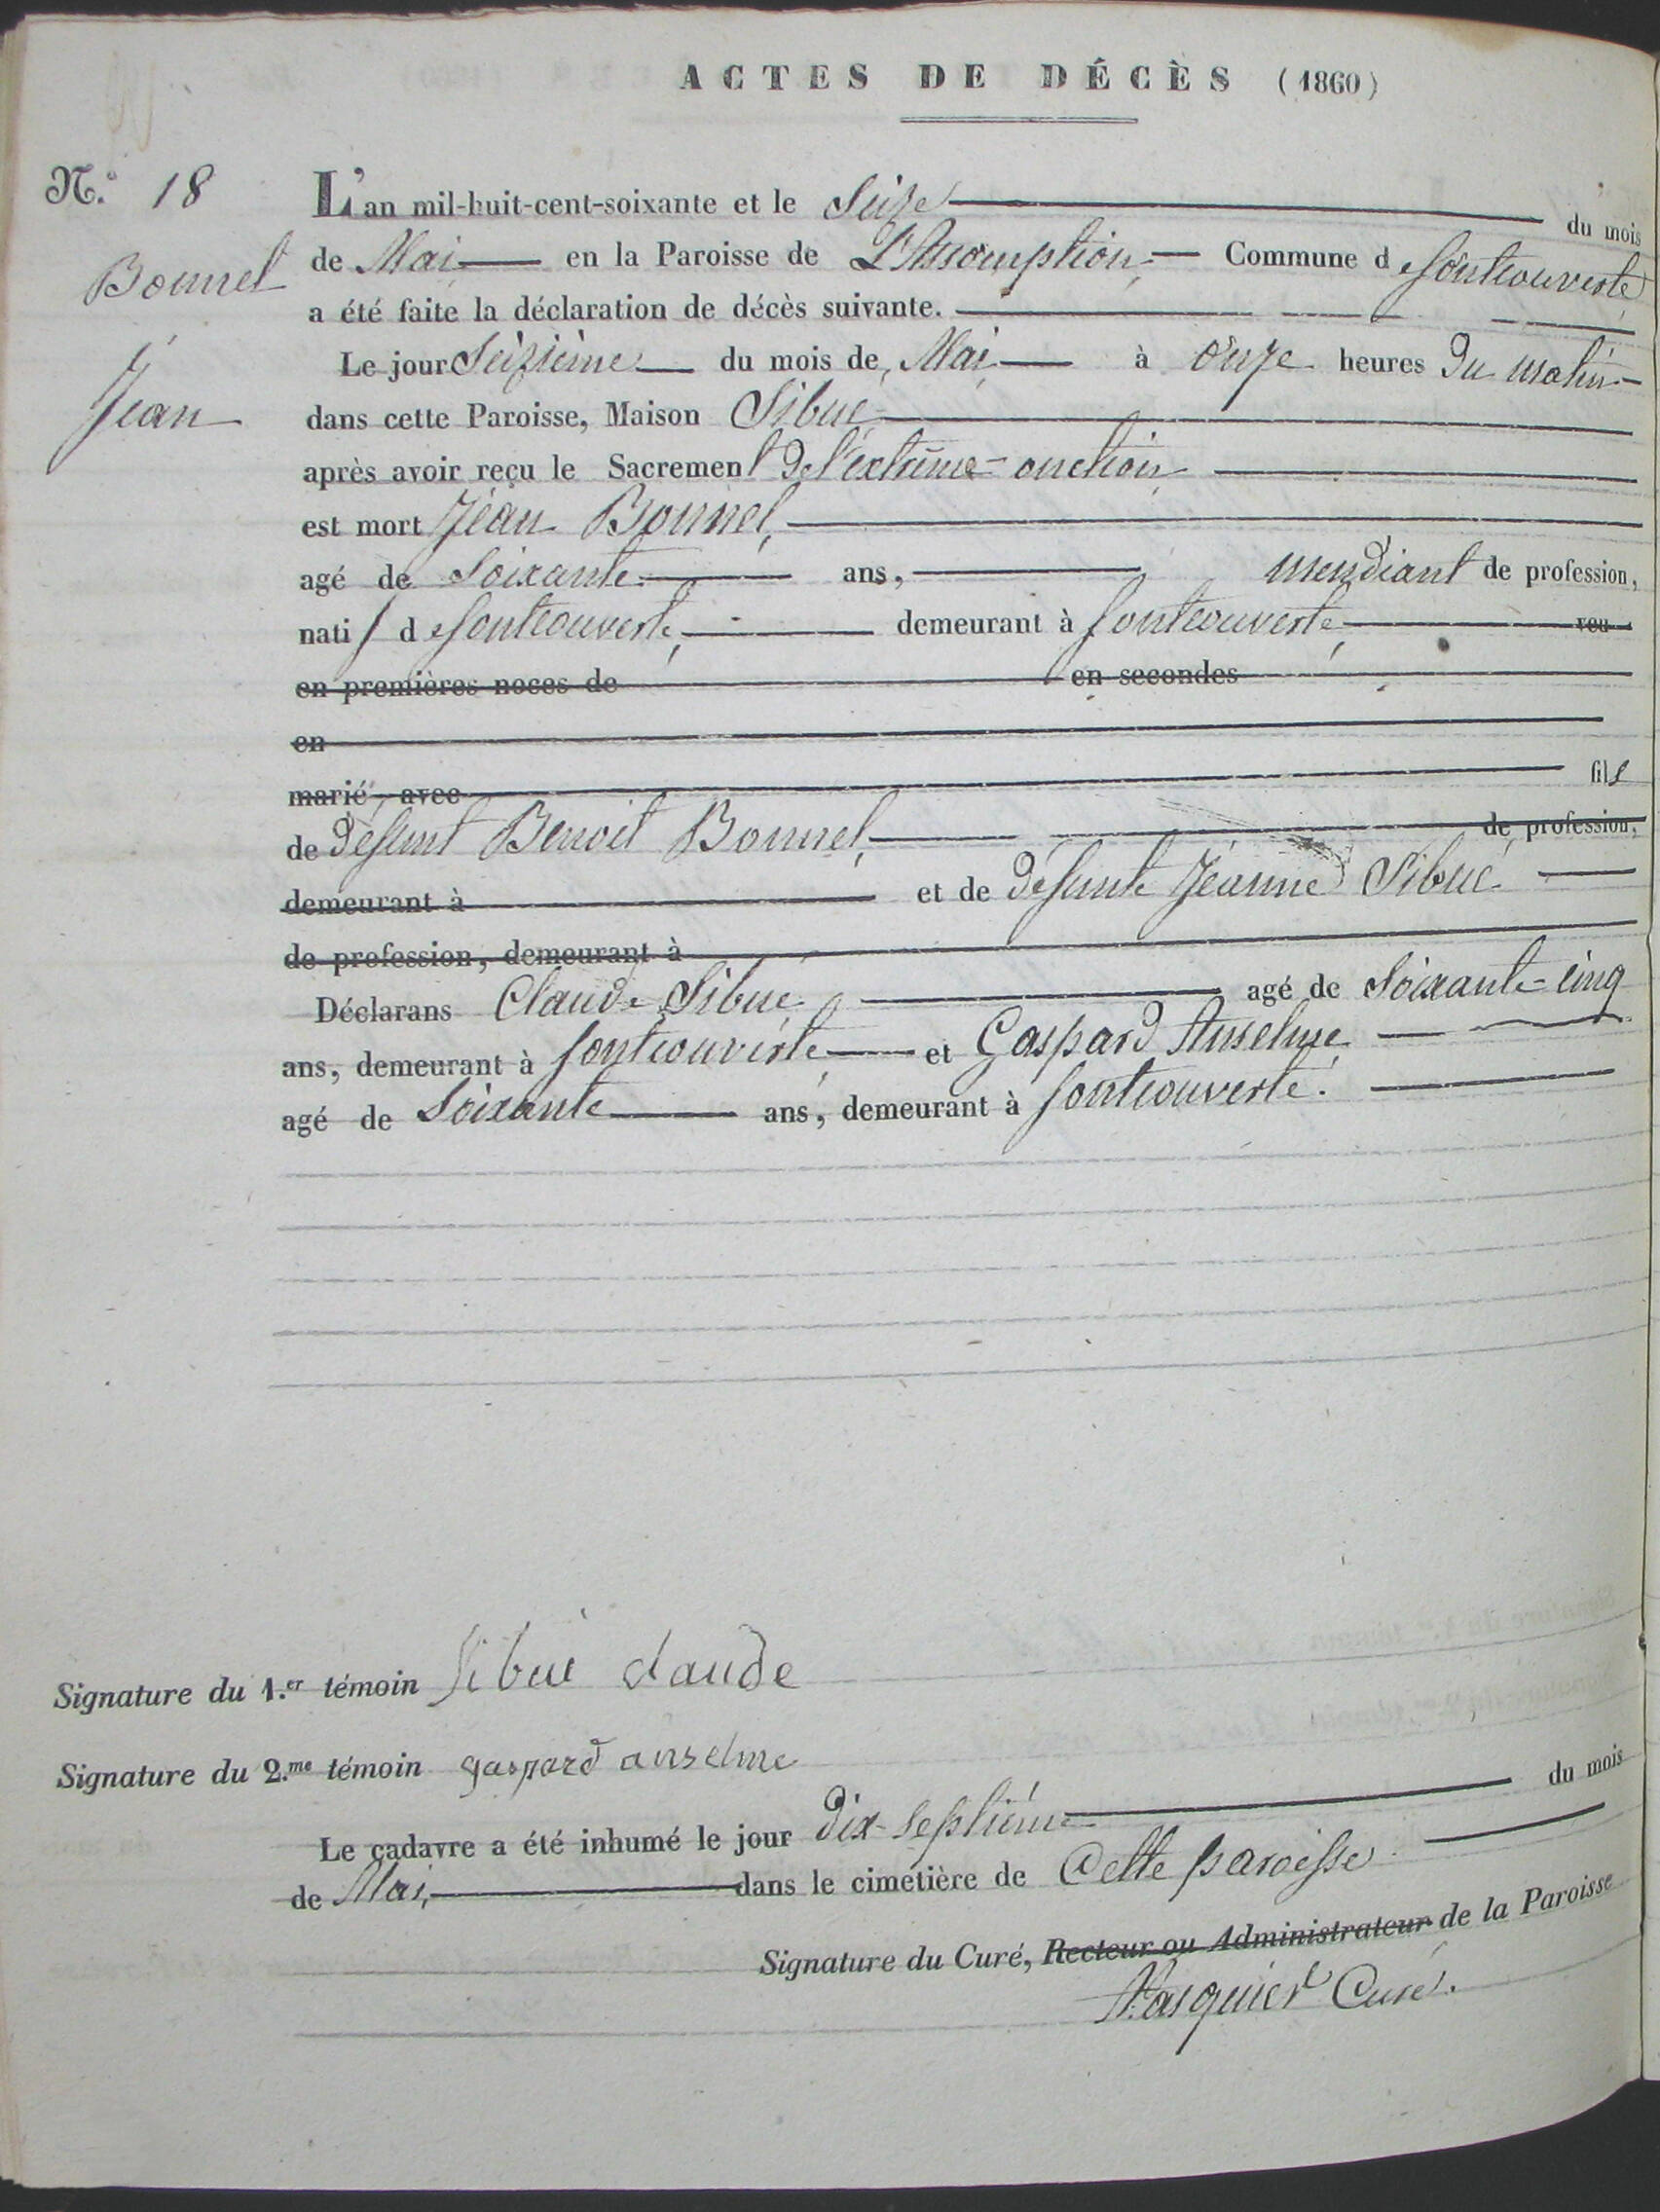 ACTES DE DÉCÈS (1860)
N.° 18
Bonnel
Jean
L'an mil-huit-cent-soixante et le Seize du mois
de Mai en la Paroisse de L'Assomption Commune de fontcouverte
a été faite la déclaration de décès suivante.
Le jour Seizième du mois de Mai à Onze heures du matin
dans cette Paroisse, Maison Sibué
après avoir reçu le Sacrement de l'extrême-onction
est mort Jean Bonnel,
agé de Soixante ans, mendiant de profession,
natif de fontcouverte, demeurant à fontcouverte, veu
en premières noces de en secondes
en
marié avec fils
de défunt Benoit Bonnel, de profession,
demeurant à et de défunte Jeanne Sibué
de profession, demeurant à
Déclarans Claude Sibué, agé de Soixante-cinq
ans, demeurant à fontcouverte, et Gaspard Anselme
agé de Soixante ans, demeurant à fontcouverte.
Signature du 1.er témoin Sibué claude
Signature du 2.me témoin gaspard anselme
Le cadavre a été inhumé le jour dix-septième du mois
de Mai, dans le cimetière de Cette paroisse.
Signature du Curé, Recteur ou Administrateur de la Paroisse
Pasquier Curé.